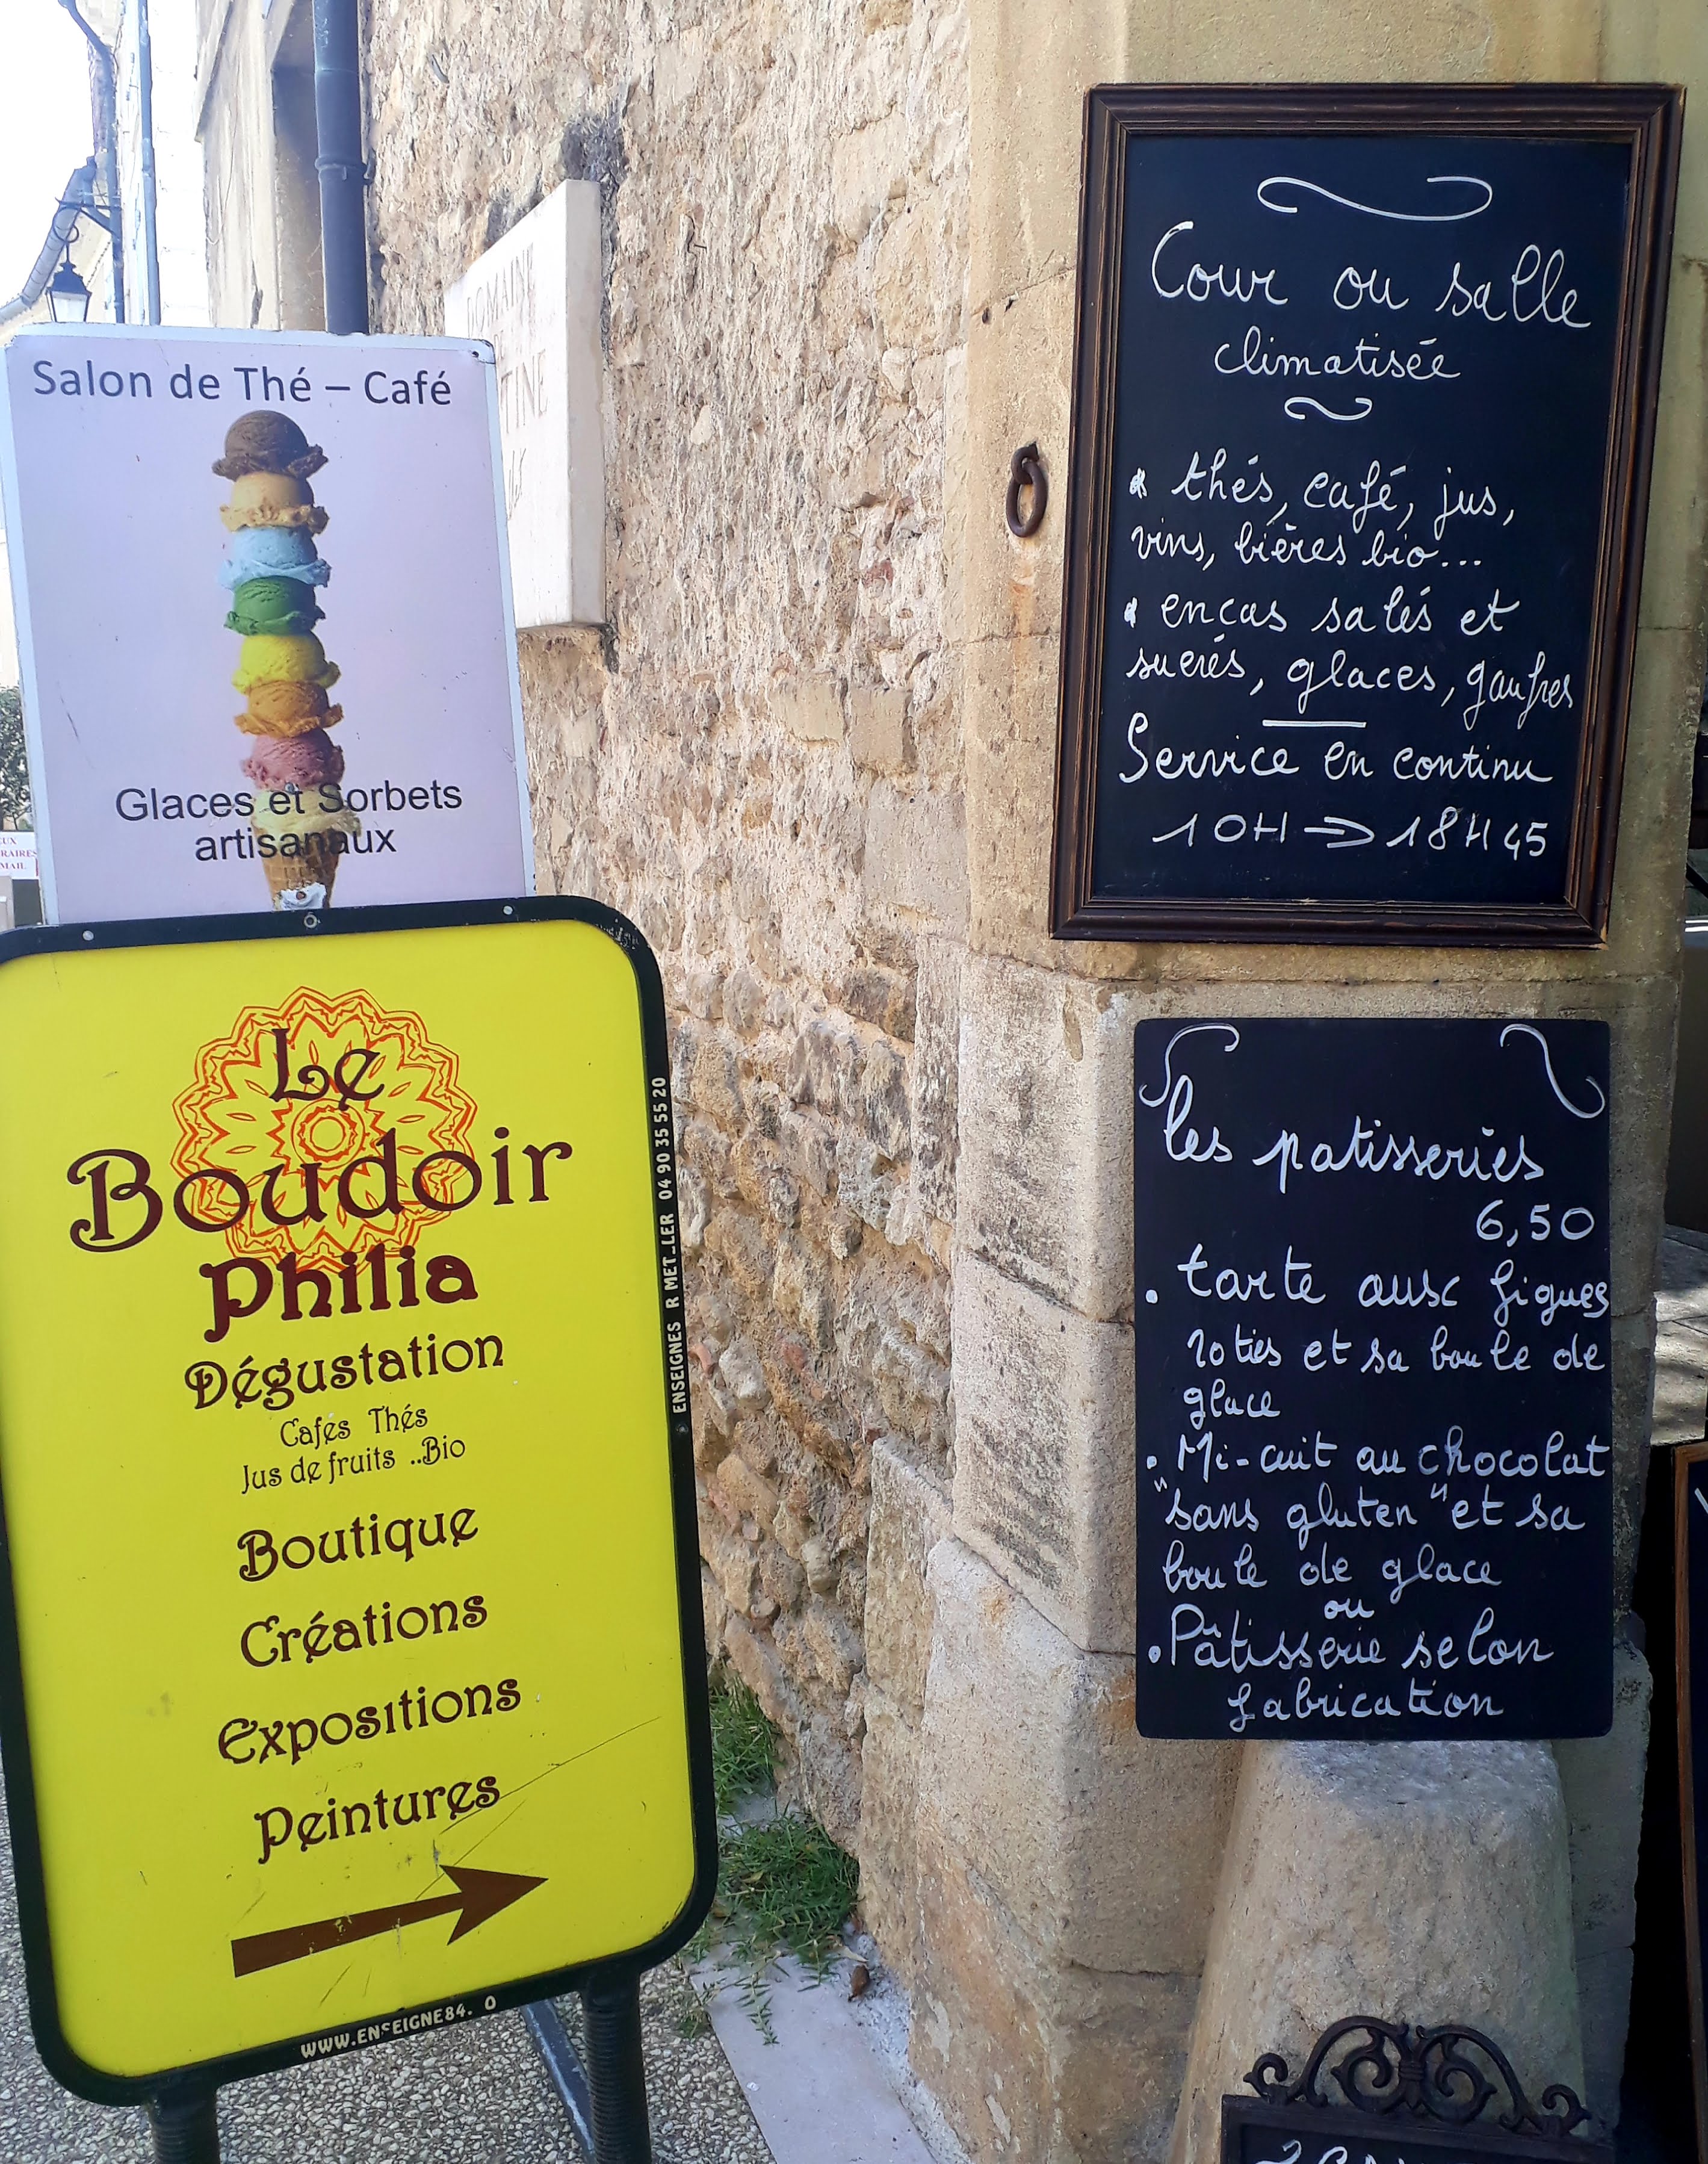 Salon de Thé – Café
Glaces et Sorbets
artisanaux
Le
Boudoir
Philia
Dégustation
Cafés Thés
Jus de fruits ..Bio
Boutique
Créations
Expositions
Peintures
ENSEIGNES 04 90 35 55 20
WWW.ENSEIGNE84.
DOMAINE
Cour ou salle
climatisée
thés, café, jus,
vins, bières bio...
encas salés et
sucrés, glaces, gaufres
Service en continu
10H => 18H45
les patisseries
6,50
. tarte aux figues
roties et sa boule de
glace
. Mi-cuit au chocolat
"sans gluten" et sa
boule de glace
ou
. Pâtisserie selon
fabrication
MAIL